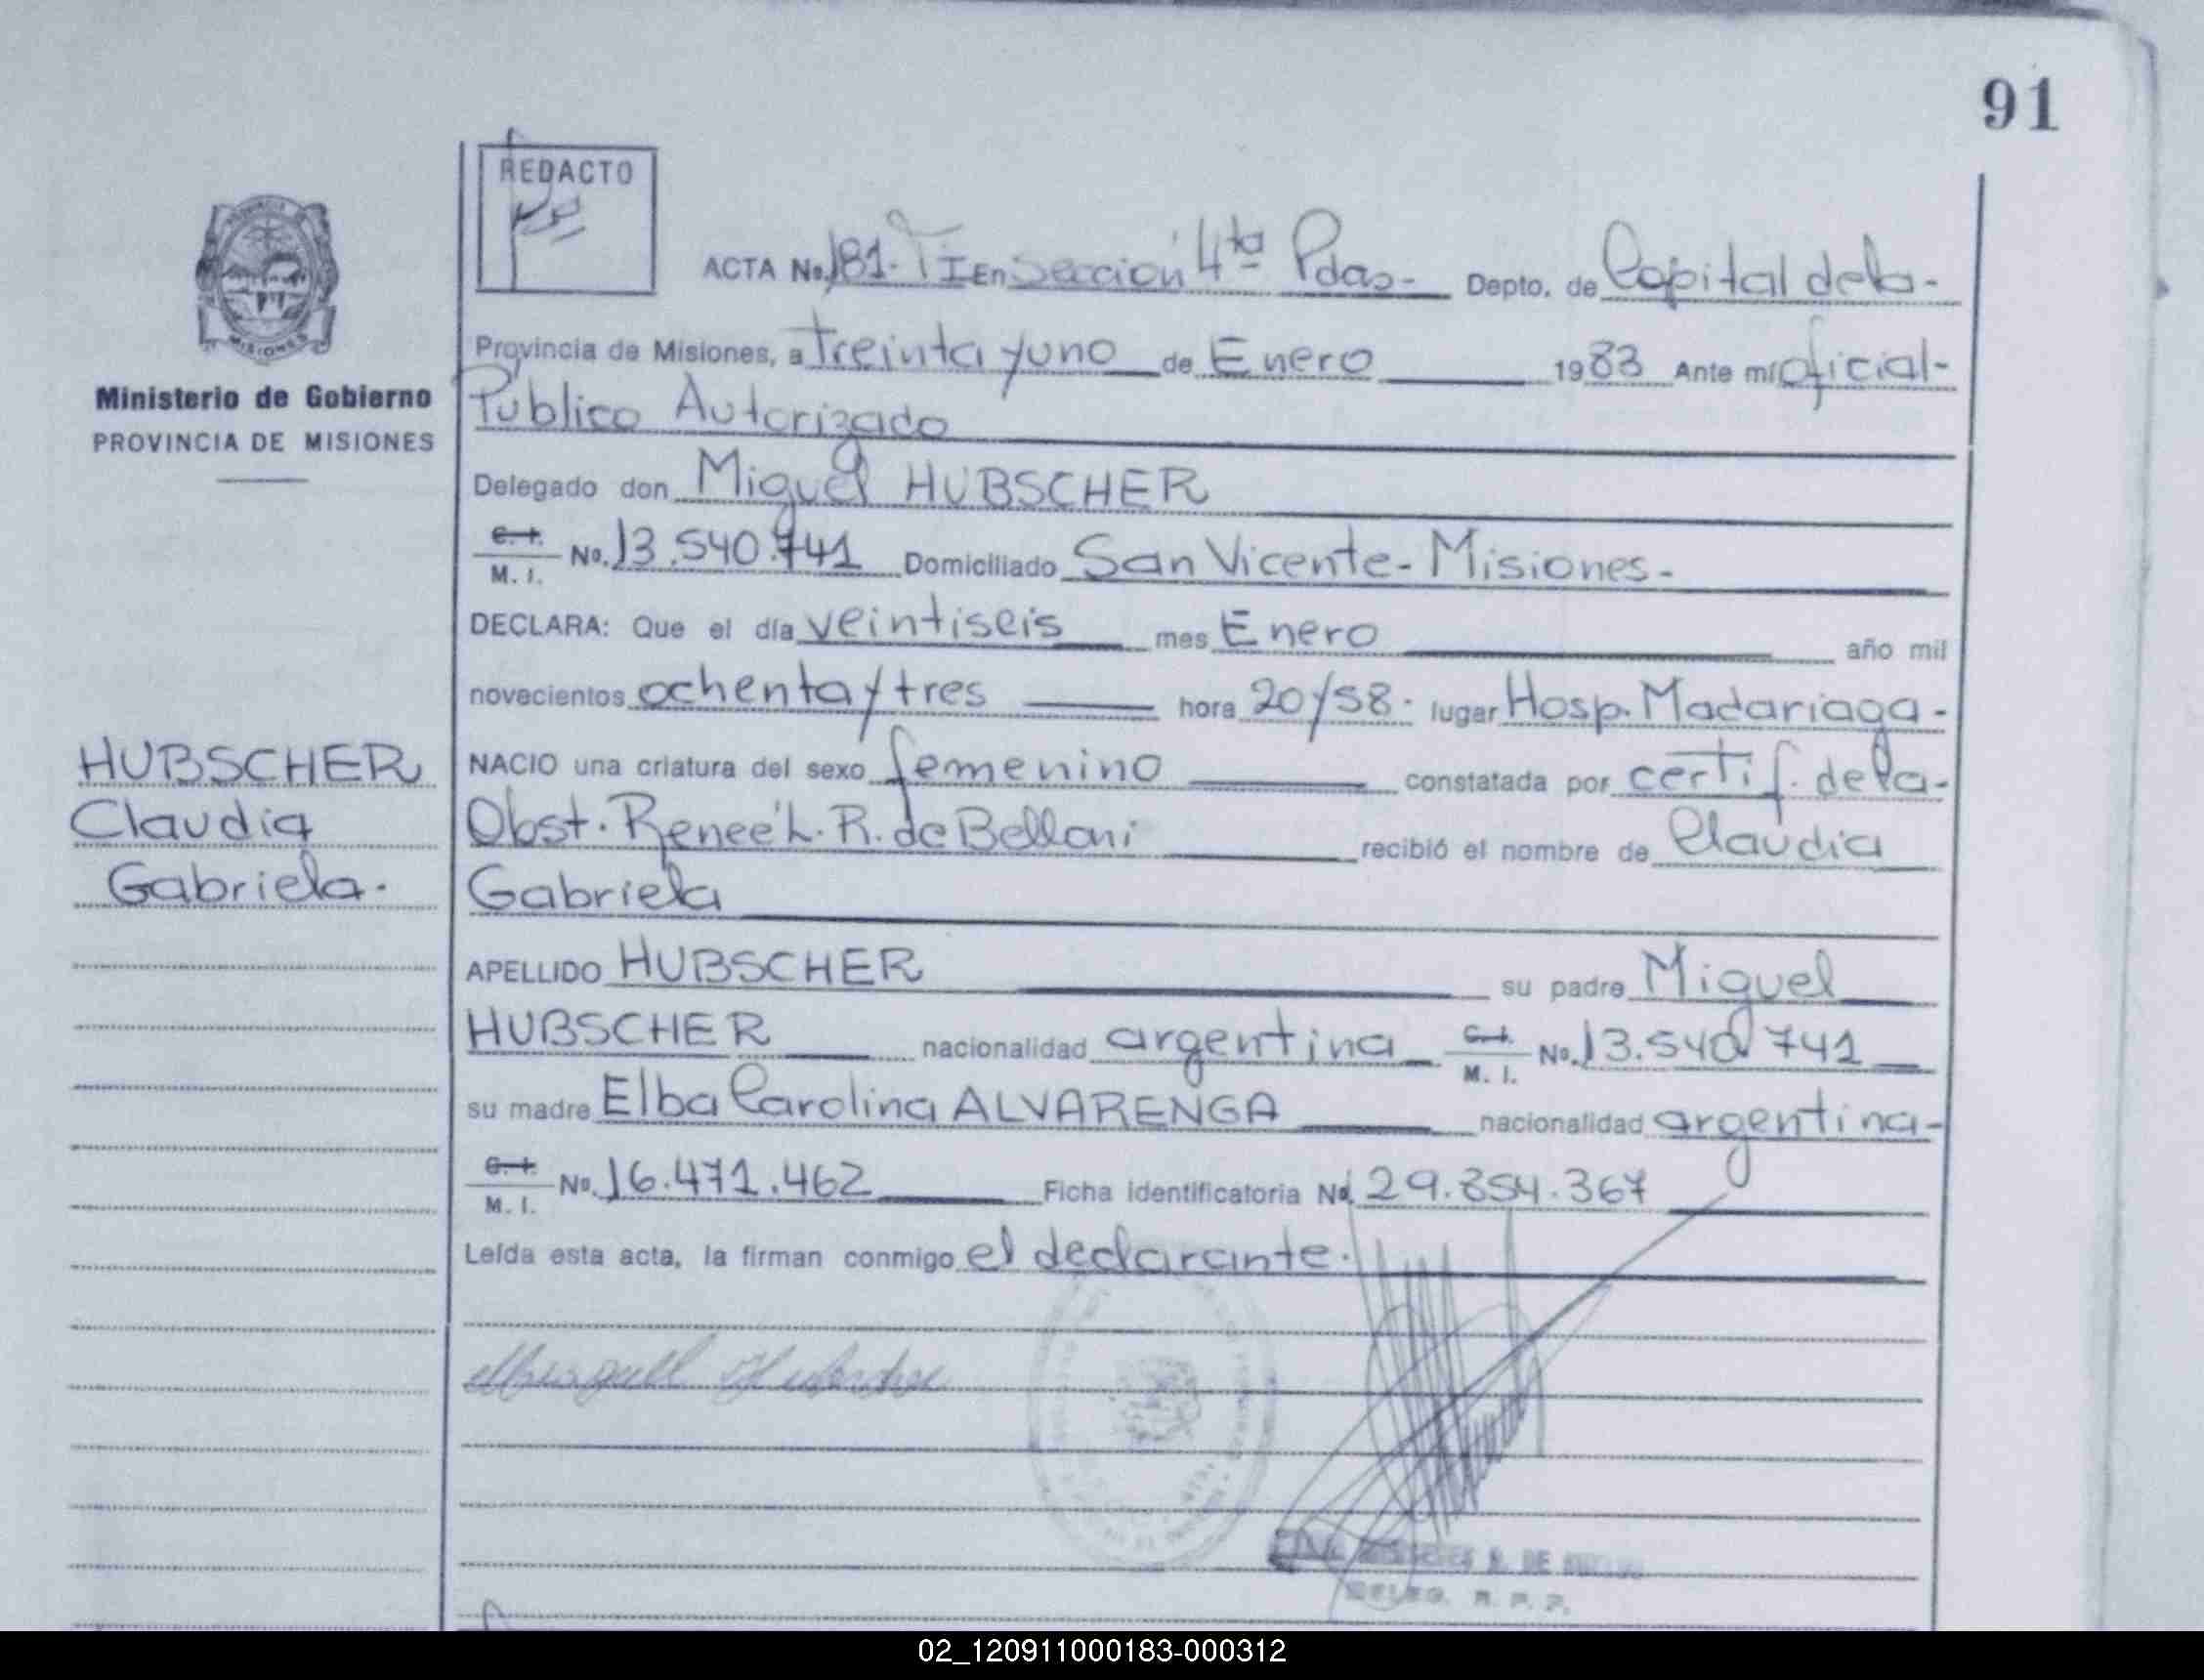 91
REDACTO
ACTA No. 181. T I En Sección 4ta Pdas- Depto. de Capital dela-
Provincia de Misiones, a treinta y uno de Enero 1983 Ante mí oficial-
Público Autorizado
Delegado don Miguel HUBSCHER
C. I. M. I. No. 13.540.741 Domiciliado San Vicente- Misiones-
DECLARA: Que el día veintiseis mes Enero año mil
novecientos ochenta y tres hora 20y58. lugar Hosp. Madariaga-
NACIO una criatura del sexo femenino constatada por certif. dela-
Obst. Reneé L. R. de Belloni recibió el nombre de Claudia
Gabriela
APELLIDO HUBSCHER su padre Miguel
HUBSCHER nacionalidad argentina C. I. M. I. No. 13.540.741
su madre Elba Carolina ALVARENGA nacionalidad argentina-
C. I. M. I. No. 16.471.462 Ficha identificatoria No. 29.854.367
Leída esta acta, la firman conmigo el declarante.
Miguel Hubscher
DE
DELEG. R. P. P.
MISIONES
Ministerio de Gobierno
PROVINCIA DE MISIONES
HUBSCHER
Claudia
Gabriela.
02_120911000183-000312